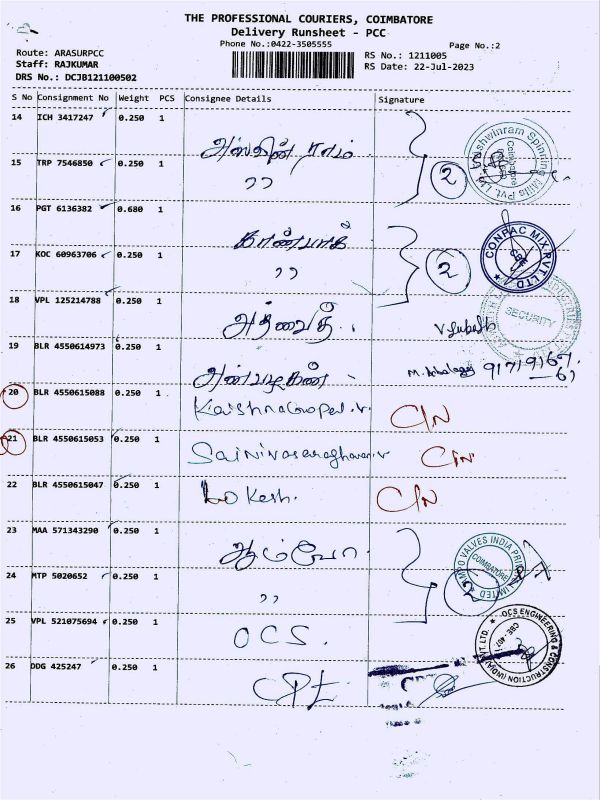 THE PROFESSIONAL COURIERS, COIMBATORE
Delivery Runsheet - PCC
Phone No.:0422-3505555
Page No.:2
Route: ARASURPCC
RS No.: 1211005
Staff: RAJKUMAR
RS Date: 22-Jul-2023
DRS No.: DCJB121100502
S No Consignment No Weight PCS Consignee Details Signature
14 ICH 3417247 0.250 1 அஸ்வின் ராம்
15 TRP 7546850 0.250 1 ,, 2
16 PGT 6136382 0.680 1
17 KOC 60963706 0.250 1 ,, 2
CONPAC MIX PVT LTD
18 VPL 125214788 0.250 1 அத்வைத்
SECURITY
19 BLR 4550614973 0.250 1 அன்பழகன்
20 BLR 4550615088 0.250 1 C/N
21 BLR 4550615053 0.250 1 C/N
22 BLR 4550615047 0.250 1 Lokesh. C/N
23 MAA 571343290 0.250 1
COIMBATORE
24 MTP 5020652 0.250 1 ,,
25 VPL 521075694 0.250 1 OCS.
OCS ENGINEERING & CONSTRUCTION (INDIA) PVT. LTD.
26 DDG 425247 0.250 1